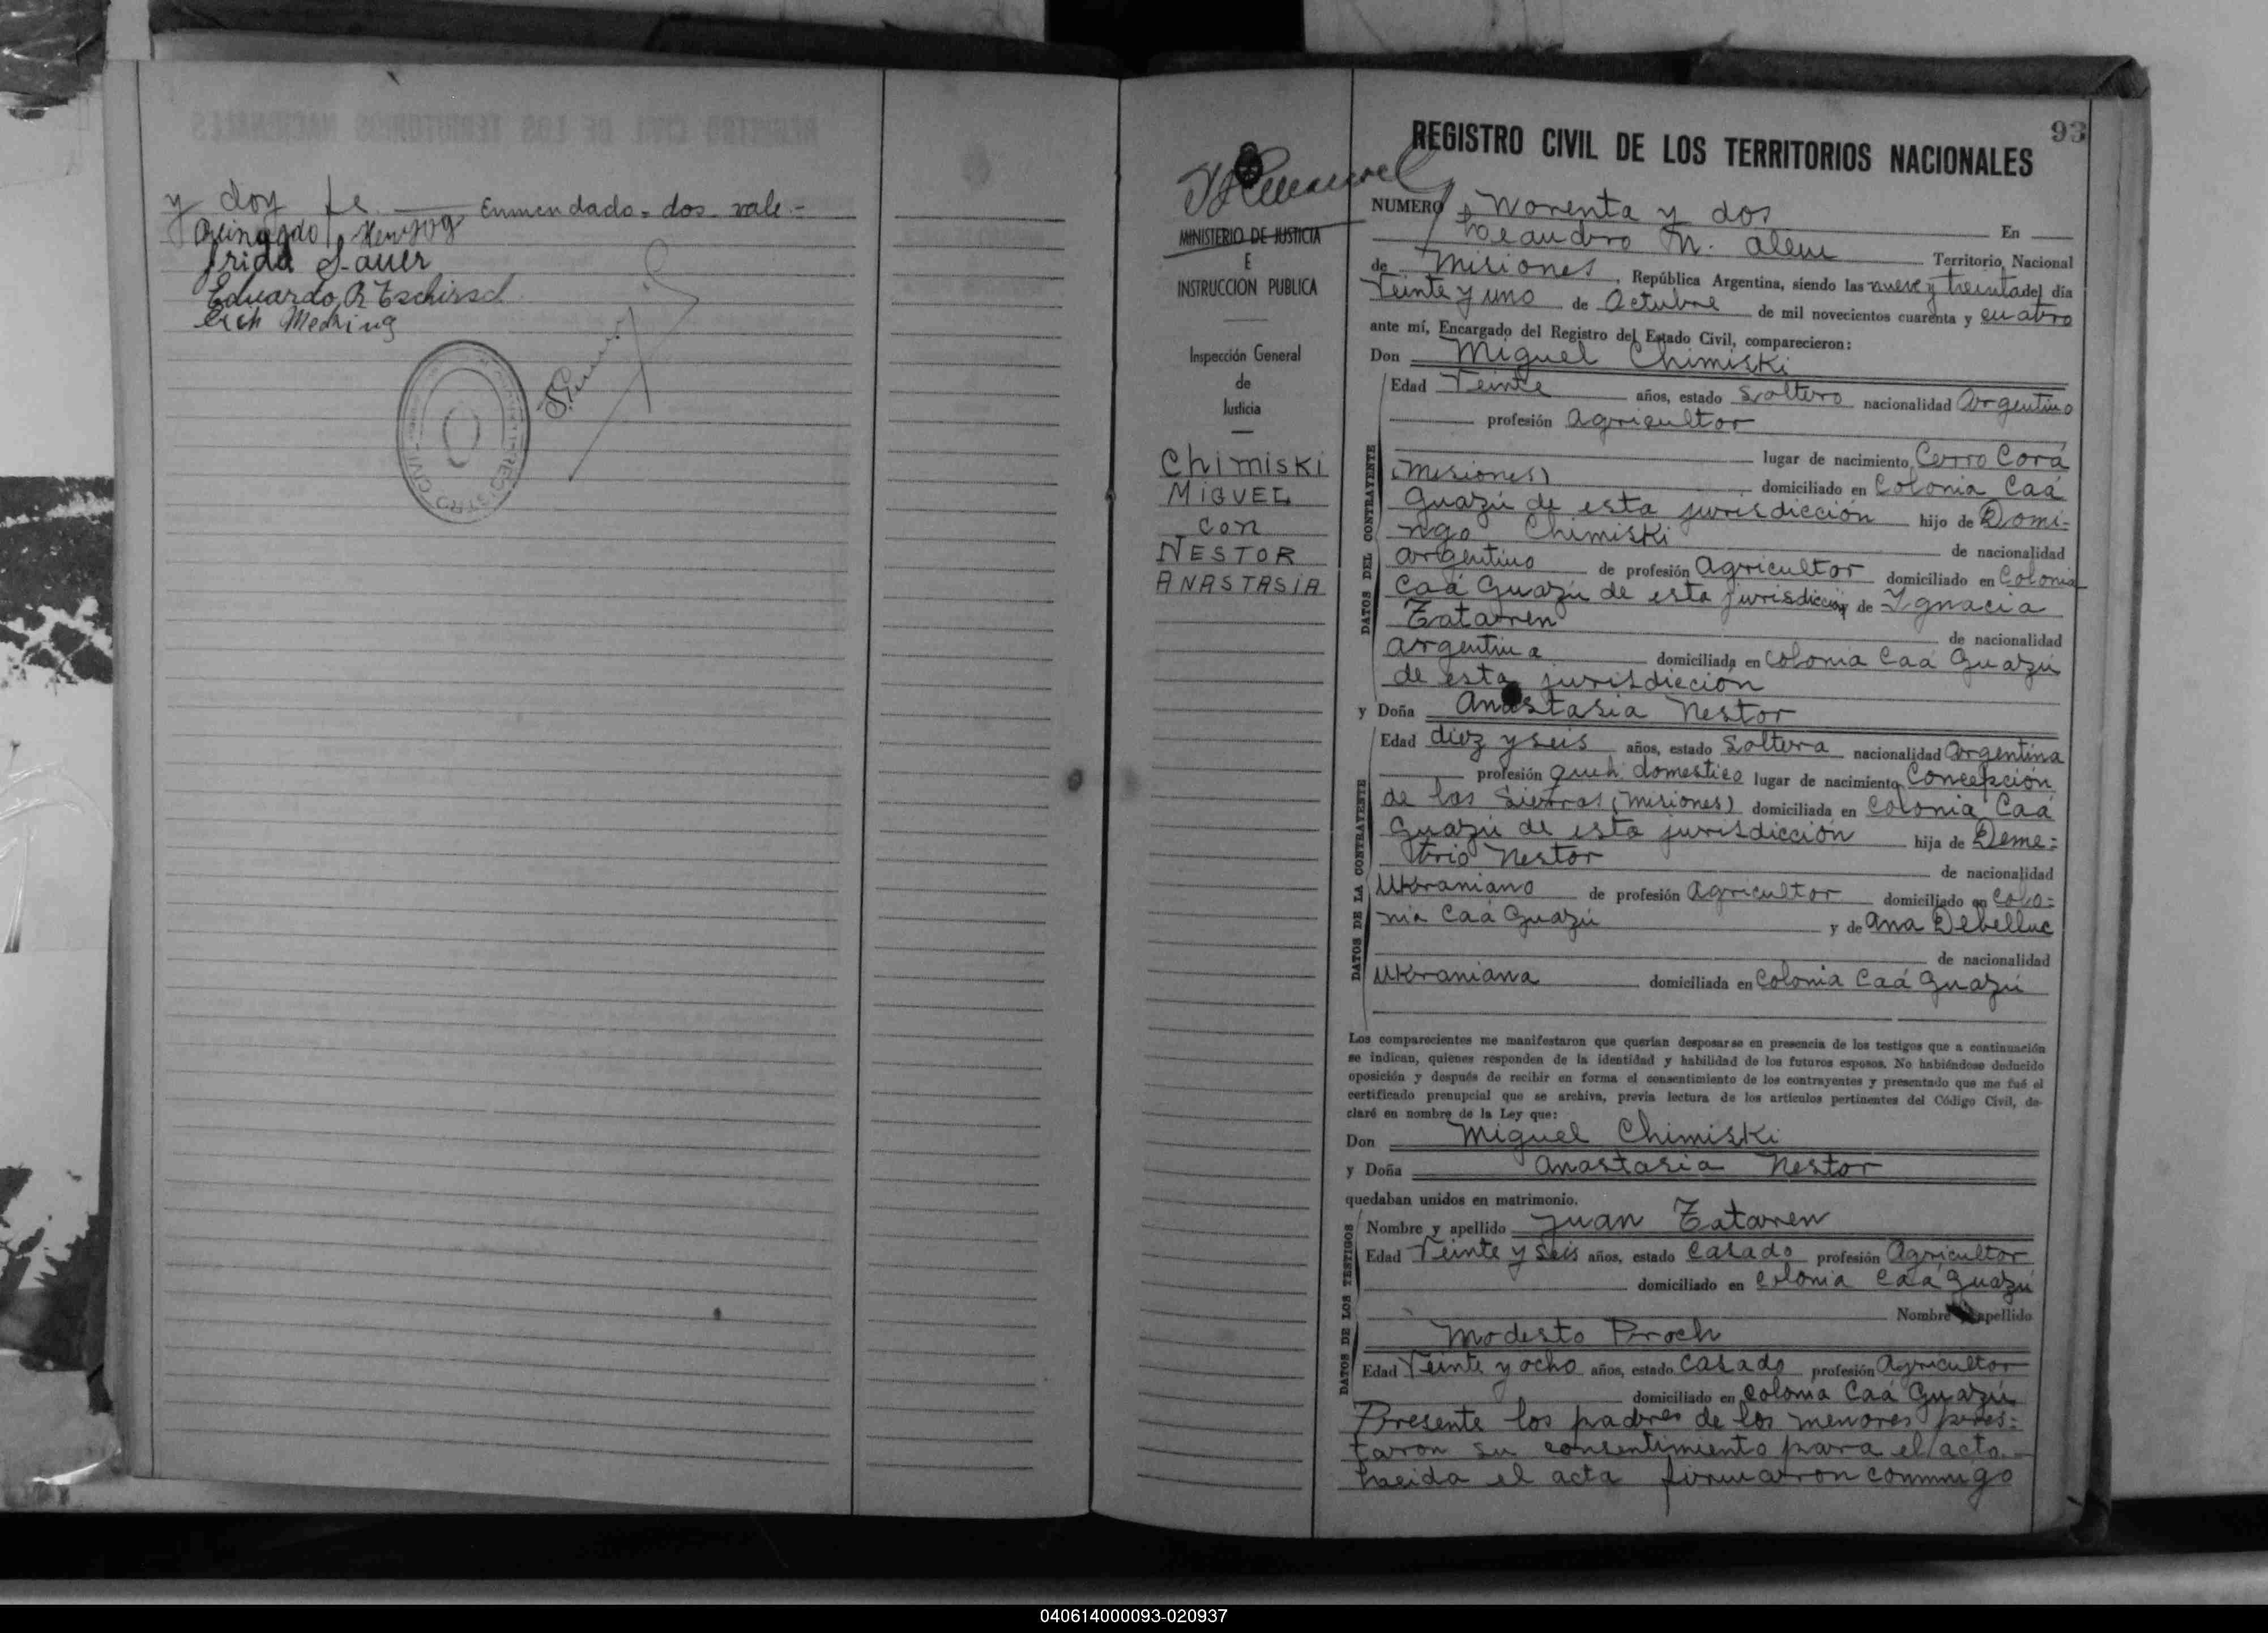 y doy fe. Enmendado = dos vale.-
Herzog
Frida Sauer
Eduardo R Tschirsch
Erich Mehring
REGISTRO CIVIL
93
REGISTRO CIVIL DE LOS TERRITORIOS NACIONALES
MINISTERIO DE JUSTICIA
E
INSTRUCCION PUBLICA
Inspección General
de
Justicia
Chimiski
MIGUEL
con
NESTOR
ANASTASIA
NUMERO y dos En
Leandro N. Alem Territorio Nacional
de Misiones, República Argentina, siendo las nueve y treinta del día
Veinte y uno de Octubre de mil novecientos cuarenta y cuatro
ante mí, Encargado del Registro del Estado Civil, comparecieron:
Don Miguel Chimiski
Edad Veinte años, estado Soltero nacionalidad Argentino
profesión Agricultor
lugar de nacimiento Cerro Corá
(Misiones) domiciliado en Colonia Caá
Guazú de esta jurisdicción hijo de Domi-
ngo Chimiski de nacionalidad
argentino de profesión Agricultor domiciliado en Colonia
Caá Guazú de esta jurisdicción de Ygnacia
Zataren de nacionalidad
argentina domiciliada en Colonia Caá Guazú
de esta jurisdicción
DATOS DEL CONTRAYENTE
y Doña Anastasia Nestor
Edad diez y seis años, estado Soltera nacionalidad Argentina
profesión queh. domestico lugar de nacimiento Concepción
de las Sierras (Misiones) domiciliada en Colonia Caá
Guazú de esta jurisdicción hija de Deme=
trio Nestor de nacionalidad
Ukraniano de profesión Agricultor domiciliado en Colo=
nia Caá Guazú y de Ana Debelluc
de nacionalidad
Ukraniana domiciliada en Colonia Caá Guazú
DATOS DE LA CONTRAYENTE
Los comparecientes me manifestaron que querían desposarse en presencia de los testigos que a continuación
se indican, quienes responden de la identidad y habilidad de los futuros esposos. No habiéndose deducido
oposición y después de recibir en forma el consentimiento de los contrayentes y presentado que me fué el
certificado prenupcial que se archiva, previa lectura de los artículos pertinentes del Código Civil, de-
claré en nombre de la Ley que:
Don Miguel Chimiski
y Doña Anastasia Nestor
quedaban unidos en matrimonio.
Nombre y apellido Juan Zataren
Edad Veinte y seis años, estado Casado profesión Agricultor
domiciliado en Colonia Caá Guazú
Nombre y apellido
Modesto Proch
Edad Veinte y ocho años, estado Casado profesión Agricultor
domiciliado en Colonia Caá Guazú
DATOS DE LOS TESTIGOS
Presente los padres de los menores pres=
taron su consentimiento para el acto.-
Leida el acta firmaron conmigo
040614000093-020937